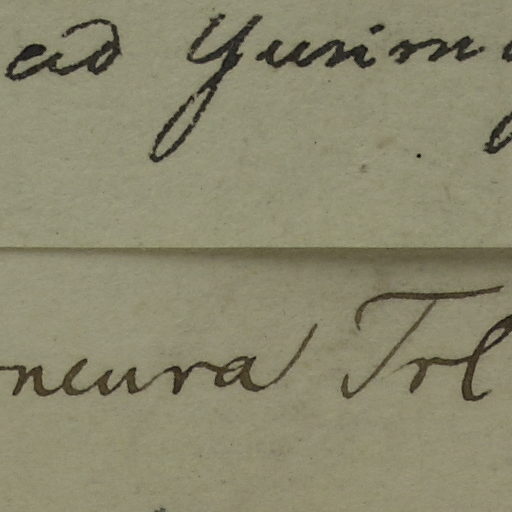 ad Yurim
neura Trl